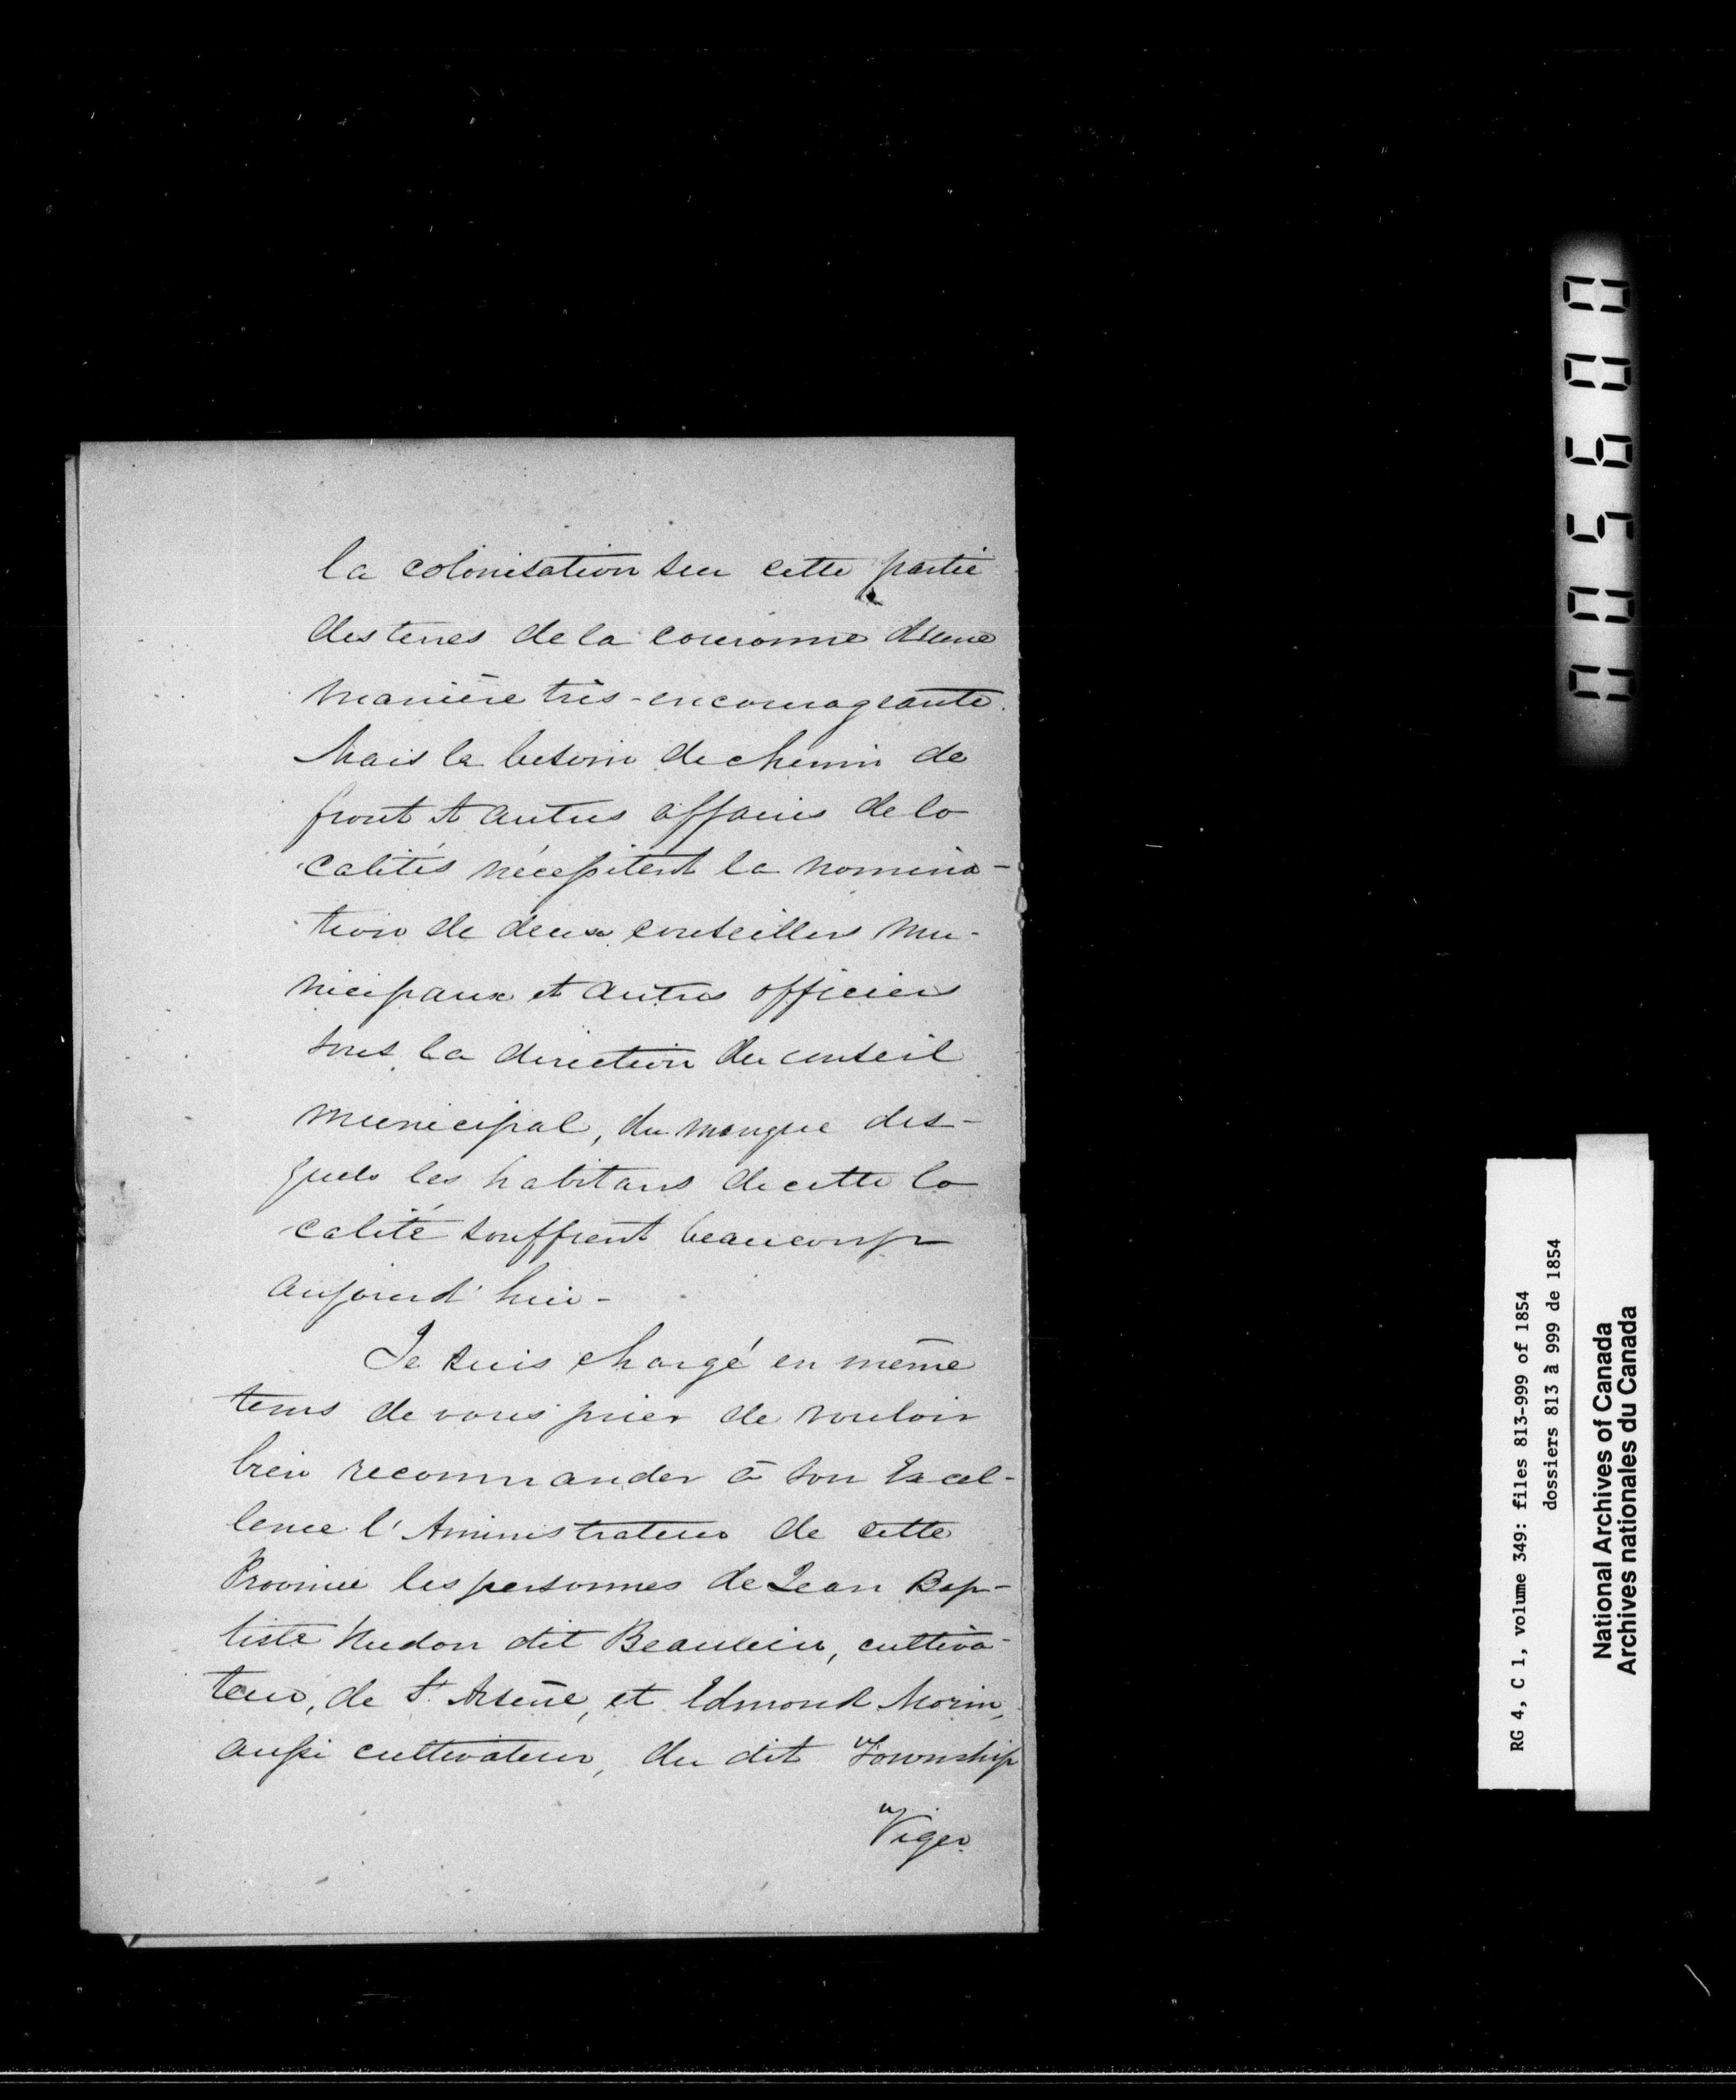 la colonisation sur cette partie
des terres de la couronne d'une
manière très-encourageante.
Mais le besoin de chemin de
front et autres affaires de lo
calités nécessitent la nomina-
tion de deux conseillers mu-
nicipaux et autres officiers
sous la direction du conseil
municipal, du manque des-
quels les habitans de cette lo
calité souffrent beaucoup
aujourd'hui-
Je suis chargé en même
tems de vous prier de vouloir
bien recommander à son Excel-
lence l'Aministrateur de cette
Province les personnes de Jean Bap-
tiste Hudon dit Beaulieu, cultiva-
teur, de St. Arsène, et Edmond Morin,
aussi cultivateur, du dit Township
Viger
005600
RG 4, C 1, volume 349: files 813-999 of 1854
dossiers 813 à 999 de 1854
National Archives of Canada
Archives nationales du Canada